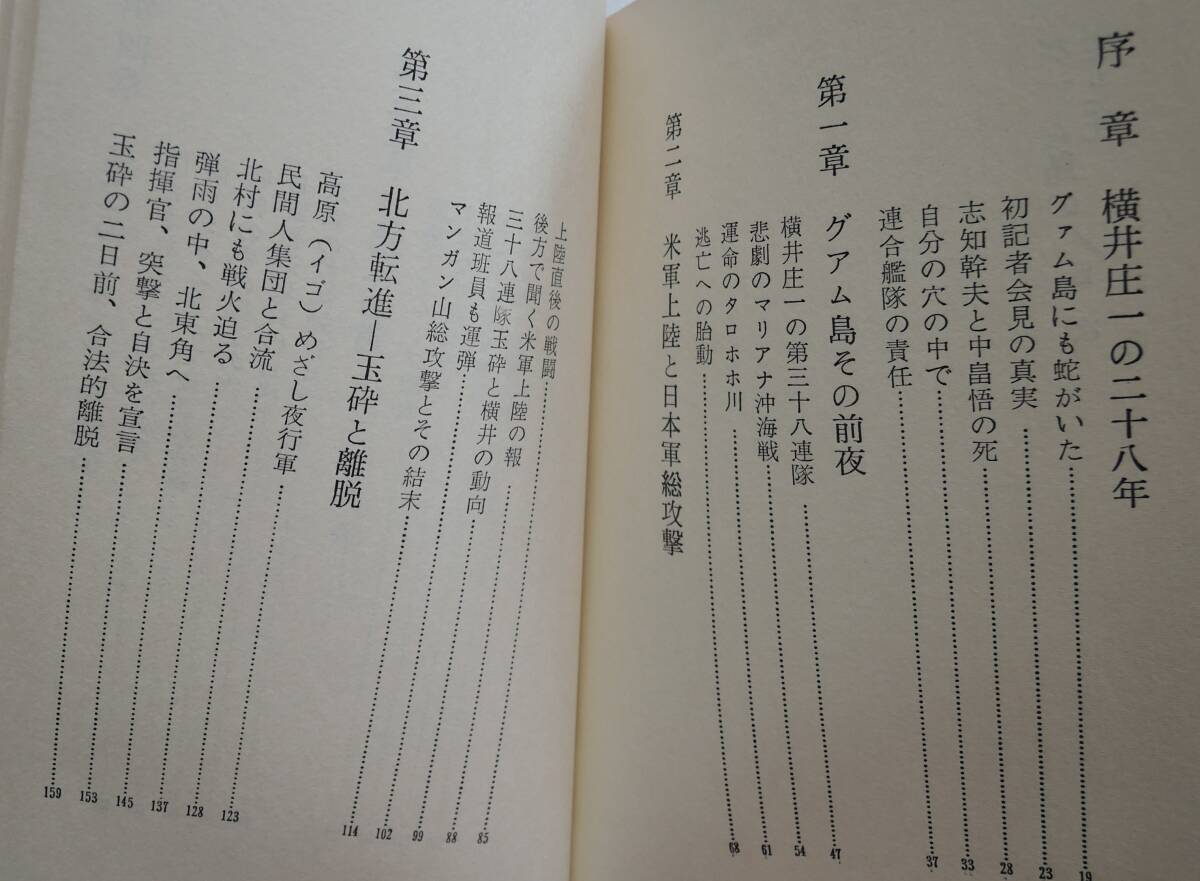 序章 横井庄一の二十八年
グァム島にも蛇がいた 19
初記者会見の真実 23
志知幹夫と中畠悟の死 28
自分の穴の中で 33
連合艦隊の責任 37
第一章 グアム島その前夜
横井庄一の第三十八連隊 47
悲劇のマリアナ沖海戦 54
運命のタロホホ川 61
逃亡への胎動 68
第二章 米軍上陸と日本軍総攻撃
上陸直後の戦闘 85
後方で聞く米軍上陸の報 88
三十八連隊玉砕と横井の動向 99
報道班員も運弾 102
マンガン山総攻撃とその結末 114
第三章 北方転進―玉砕と離脱
高原（イゴ）めざし夜行軍 123
民間人集団と合流 128
北村にも戦火迫る 137
弾雨の中、北東角へ 145
指揮官、突撃と自決を宣言 153
玉砕の二日前、合法的離脱 159